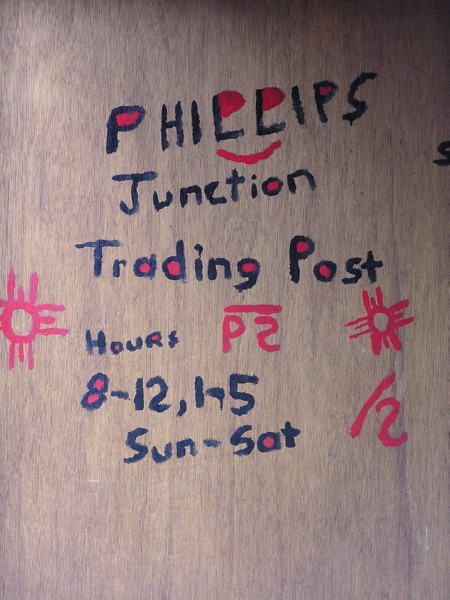 PHILLIPS
Junction
Trading Post
Hours
8-12, 1-5
Sun-Sat